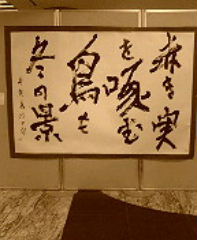 赤き実
を啄む
鳥も
冬の景